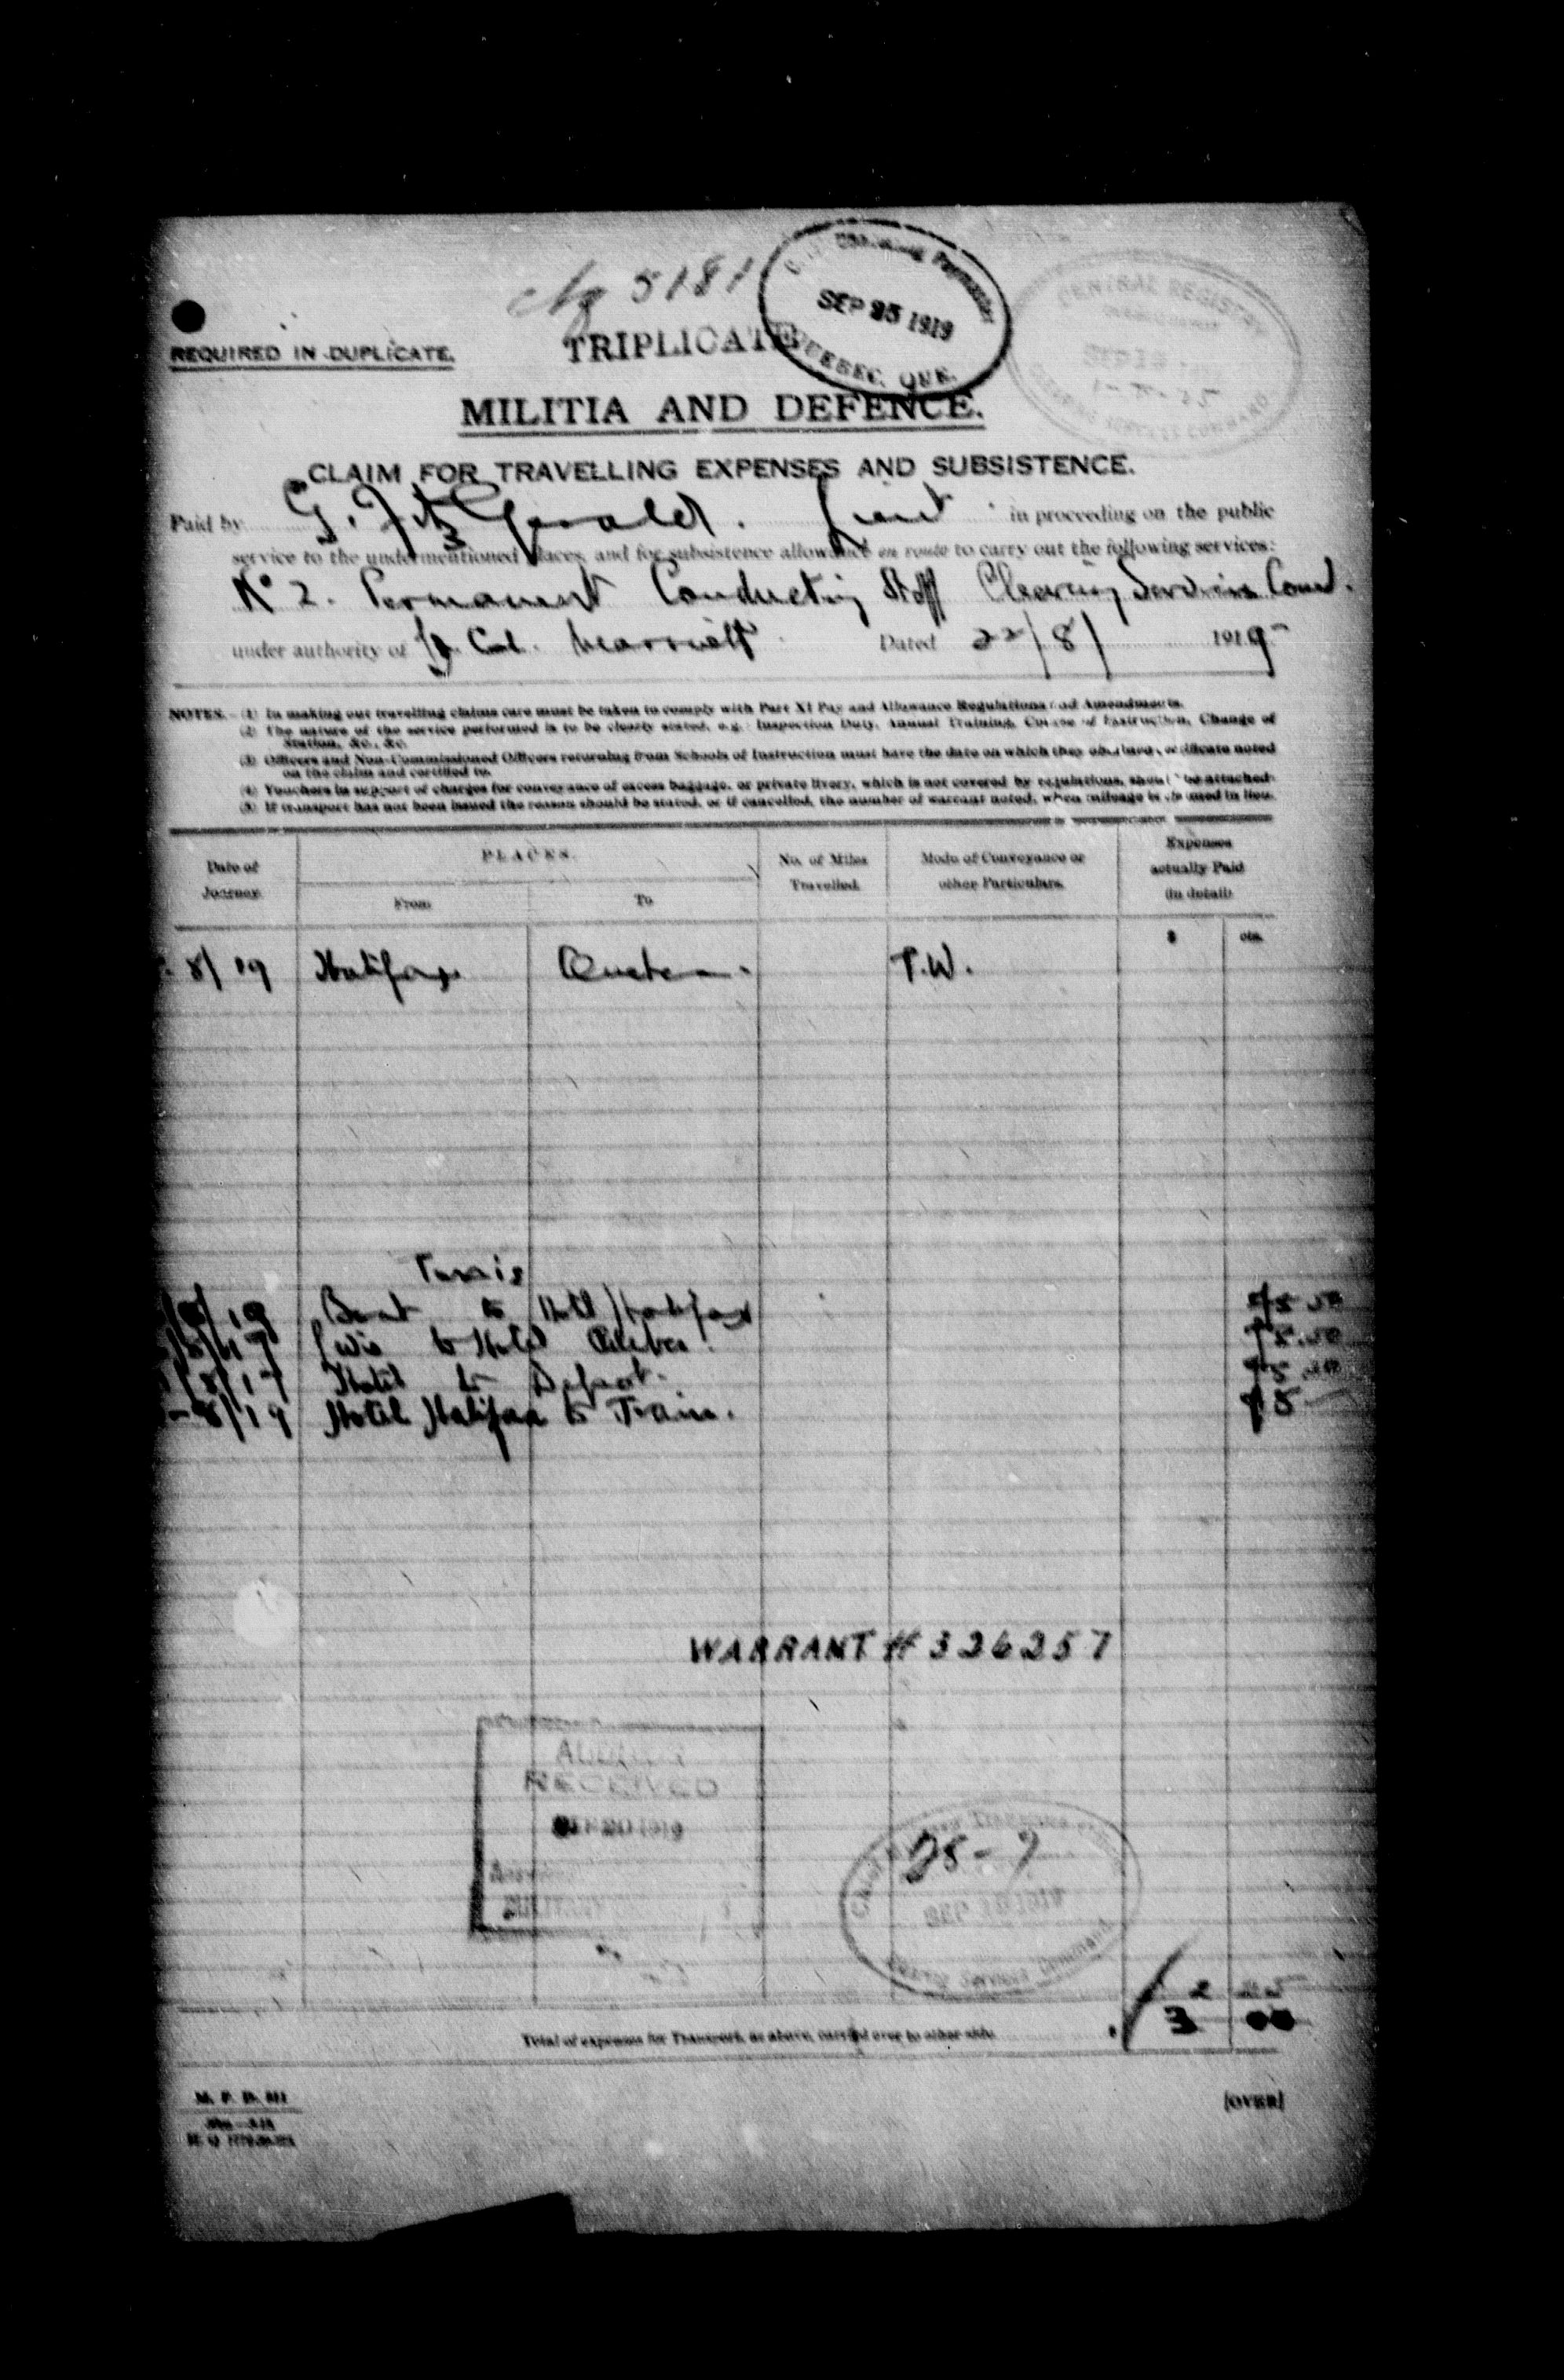 5181
SEP 25 1919
QUEBEC, QUE.
CENTRAL REGISTRY
REQUIRED IN DUPLICATE.
TRIPLICATE
MILITIA AND DEFENCE.
CLAIM FOR TRAVELLING EXPENSES AND SUBSISTENCE.
Paid by G. FitzGerald. Lieut in proceeding on the public
service to the undermentioned places, and for subsistence allowance en route to carry out the following services:
No 2. Permanent Conducting Staff Clearing Services Comd.
under authority of Lt. Col. Dated 22/8/ 1919
NOTES.—(1) In making out travelling claims care must be taken to comply with Part XI Pay and Allowance Regulations and Amendments.
(2) The nature of the service performed is to be clearly stated, e.g.: Inspection Duty, Annual Training, Course of Instruction, Change of
Station, &c., &c.
(3) Officers and Non-Commissioned Officers returning from Schools of Instruction must have the date on which they obtained certificate noted
on the claim and certified to.
(4) Vouchers in support of charges for conveyance of excess baggage, or private livery, which is not covered by regulations, should be attached.
(5) If transport has not been issued the reason should be stated, or if cancelled, the number of warrant noted, when mileage is claimed in lieu.
Date of Journey
PLACES.
From
To
No. of Miles Travelled.
Mode of Conveyance or other Particulars.
Expenses actually Paid (in detail)
$ cts.
8/19 Halifax Quebec. T.W.
Taxis
/19 Boat to Hotel Halifax
to Hotel Quebec.
Hotel to Depot.
8/19 Hotel Halifax to Train.
WARRANT # 326257
RECEIVED
SEP 20 1919
25-9
Clearing Services Command
3 00
Total of expenses for Transport, as above, carried over to other side.
[OVER]